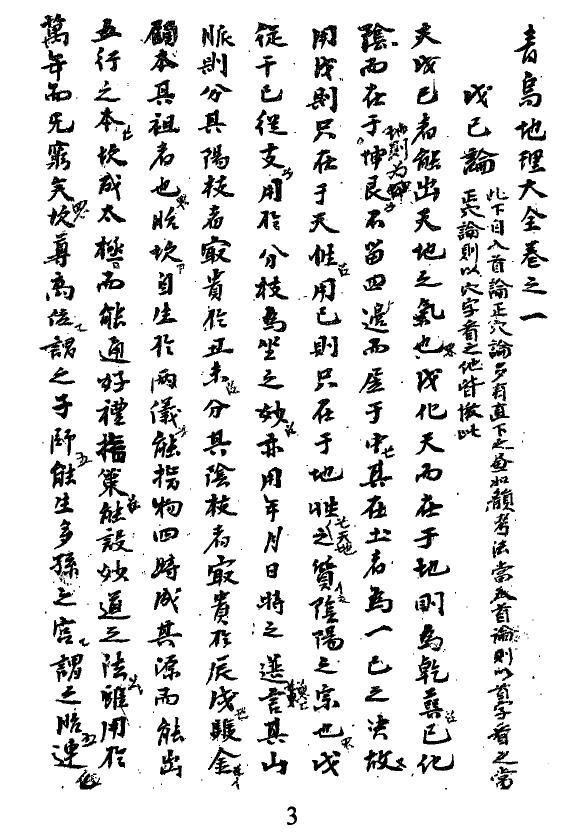 青烏地理大全卷之一
戊己論 此下自入首論正穴論多有直下之並如顏考法當爲首論則以首字看之當
正穴論則以穴字看之他皆倣此
夫戊己者能出天地之氣也戊化天而在于地則爲乾巽己化
陰而在于坤艮不留四邊而虛于中其在土者爲一己之決故
用戊則只在于天性用己則只在于地性之質陰陽之宗也戊
從干己從支用於分枝爲坐之妙亦用年月日時之選言其山
脈則分其陽枝者最貴於丑未分其陰枝者最貴於辰戌雖金
顧本其祖者也胎坎自生於兩儀能撈物四時成其源而能出
五行之本坎成太極而能通好禮指策能設妙道之法雖用於
萬年而无窮矣坎尊离位謂之子師能生多孫之宮謂之胎連
3